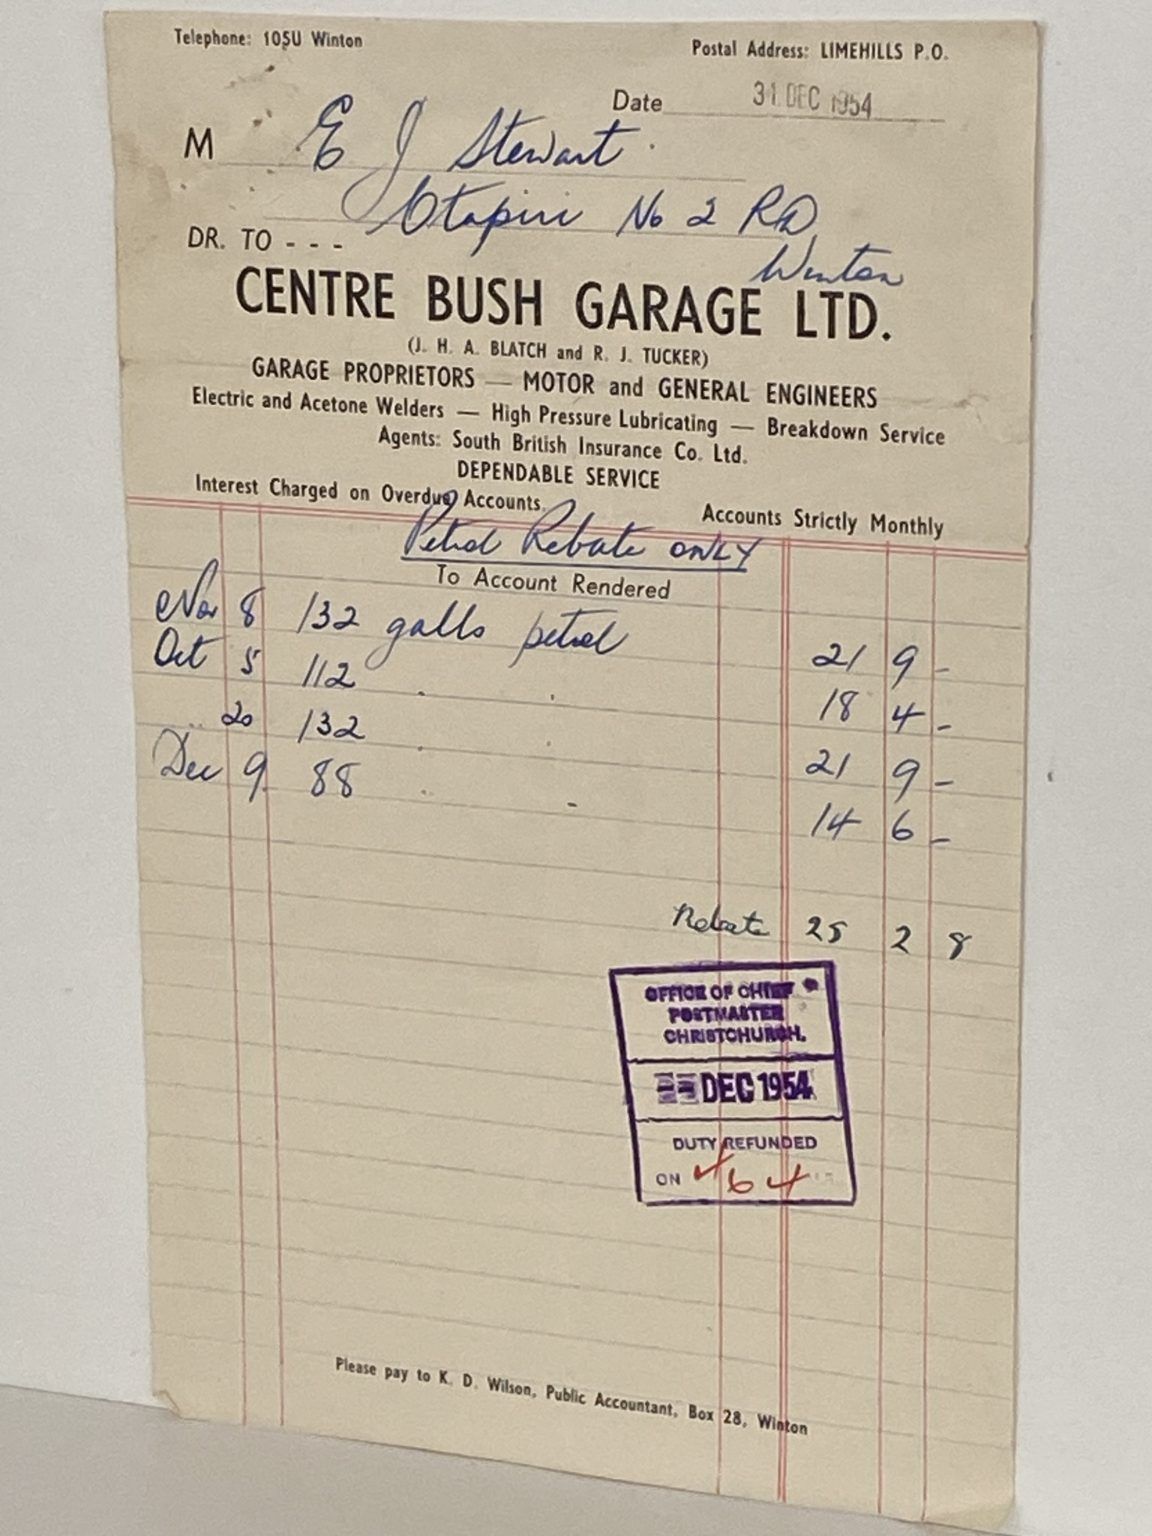 Telephone: 105U Winton
Postal Address: LIMEHILLS P.O.
Date 31 DEC 1954
M E J Stewart
Otapiri No 2 RD
Winton
DR. TO - - -
CENTRE BUSH GARAGE LTD.
(J. H. A. BLATCH and R. J. TUCKER)
GARAGE PROPRIETORS — MOTOR and GENERAL ENGINEERS
Electric and Acetone Welders — High Pressure Lubricating — Breakdown Service
Agents: South British Insurance Co. Ltd.
DEPENDABLE SERVICE
Interest Charged on Overdue Accounts.
Accounts Strictly Monthly
Petrol Rebate ONLY
To Account Rendered
Nov 8 132 galls petrol 21 9 -
Oct 5 112 . . 18 4 -
.. 20 132 . . 21 9 -
Dec 9 88 . - 14 6 -
Rebate 25 2 8
OFFICE OF CHIEF
POSTMASTER
CHRISTCHURCH.
DEC 1954
DUTY REFUNDED
ON 464
Please pay to K. D. Wilson, Public Accountant, Box 28, Winton